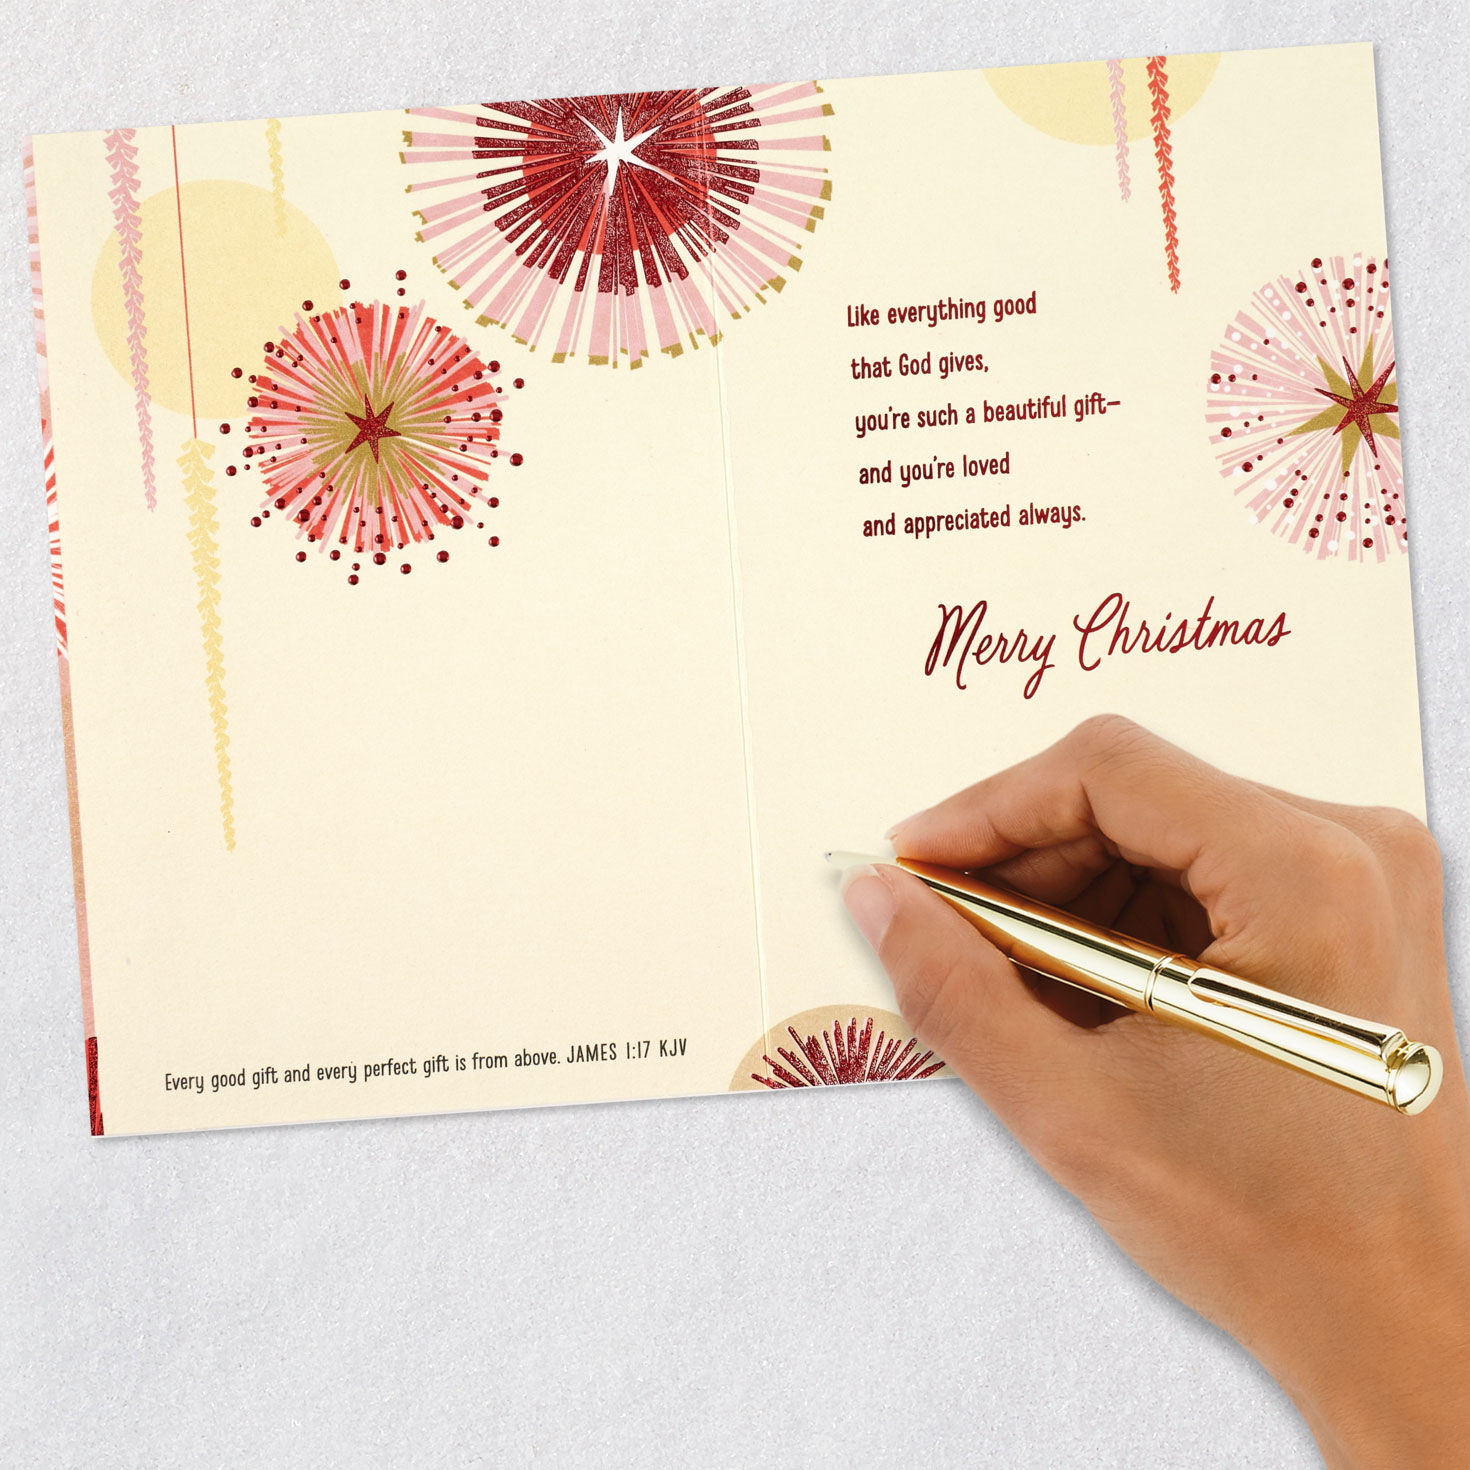 Every good gift and every perfect gift is from above. JAMES 1:17 KJV
Like everything good
that God gives,
you're such a beautiful gift—
and you're loved
and appreciated always.
Merry Christmas